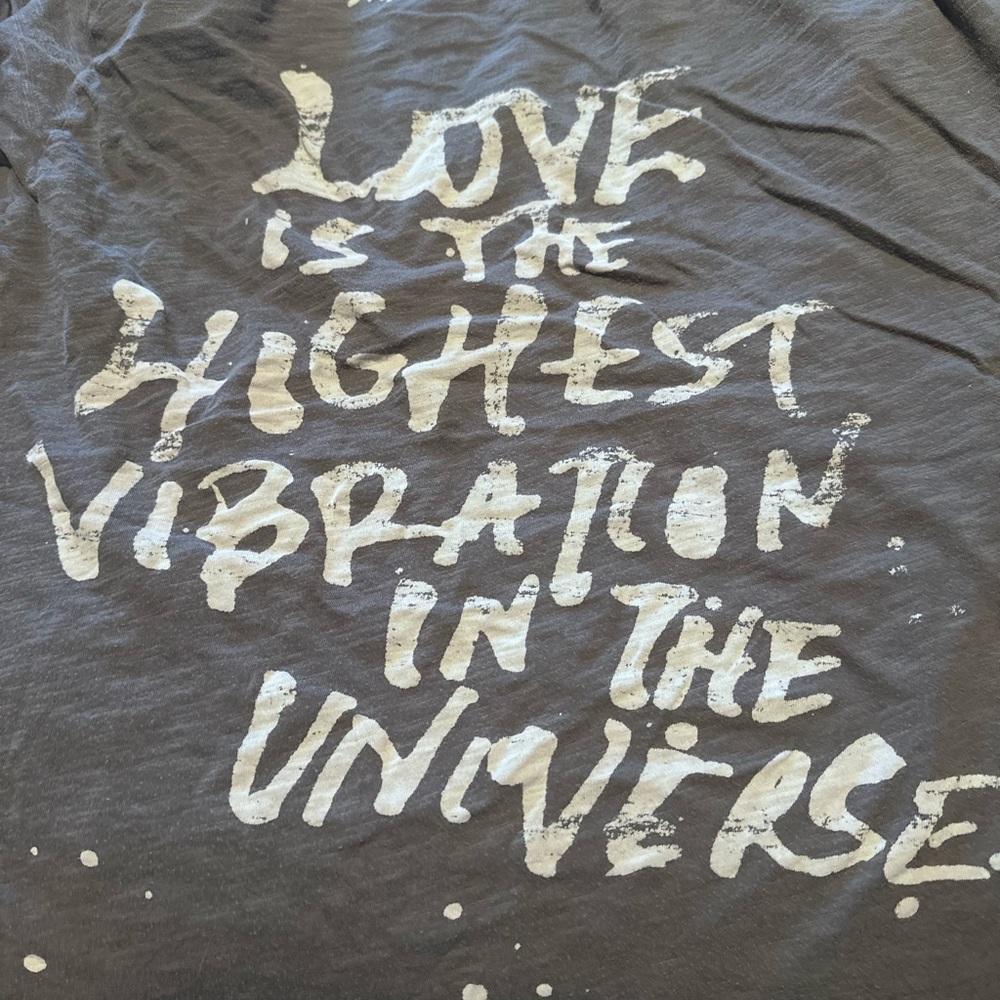 LOVE
iS THE
HIGHEST
ViBRATION
IN THE
UNIVERSE.